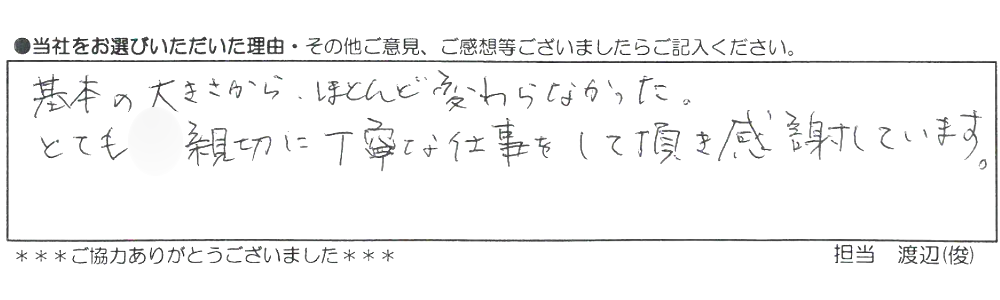 ●当社をお選びいただいた理由・その他ご意見、ご感想等ございましたらご記入ください。
基本の大きさから、ほとんど変わらなかった。
とても 親切に丁寧な仕事をして頂き感謝しています。
***ご協力ありがとうございました***
担当 渡辺(俊)